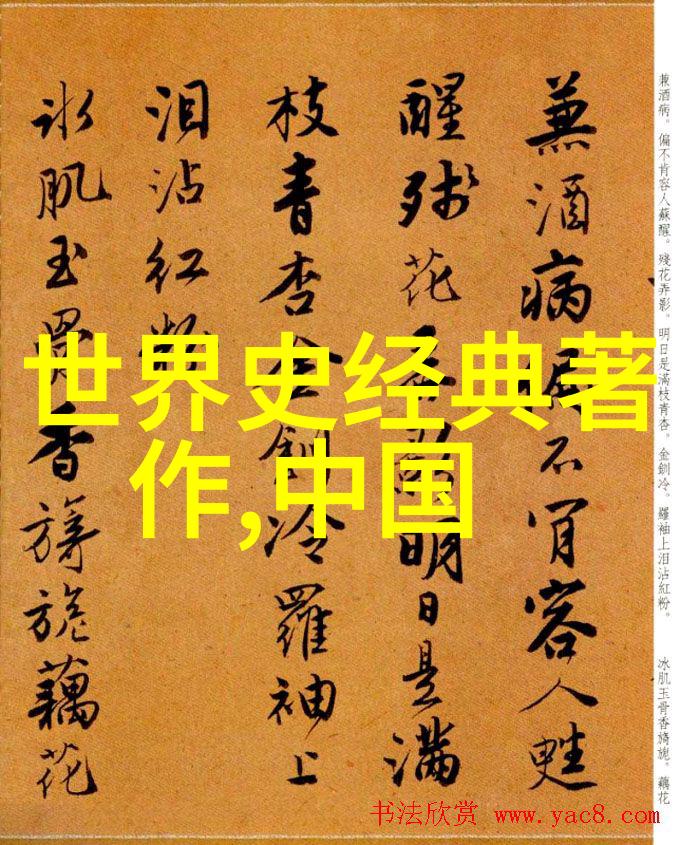 兼酒病。偏不肯容人蘇醒。殘花弄影。明日是滿枝青杏。金釧冷。羅袖上泪沾紅粉。
冰肌玉骨香旖旎。藕花
兼酒病偏不肯容人甦
醒残花弄影明日是滿
枝青杏金釧冷羅袖上
泪沾红粉
冰肌玉骨香旖旎藕花
世界史经典著
作,中国
书法欣赏 www.yac8.com